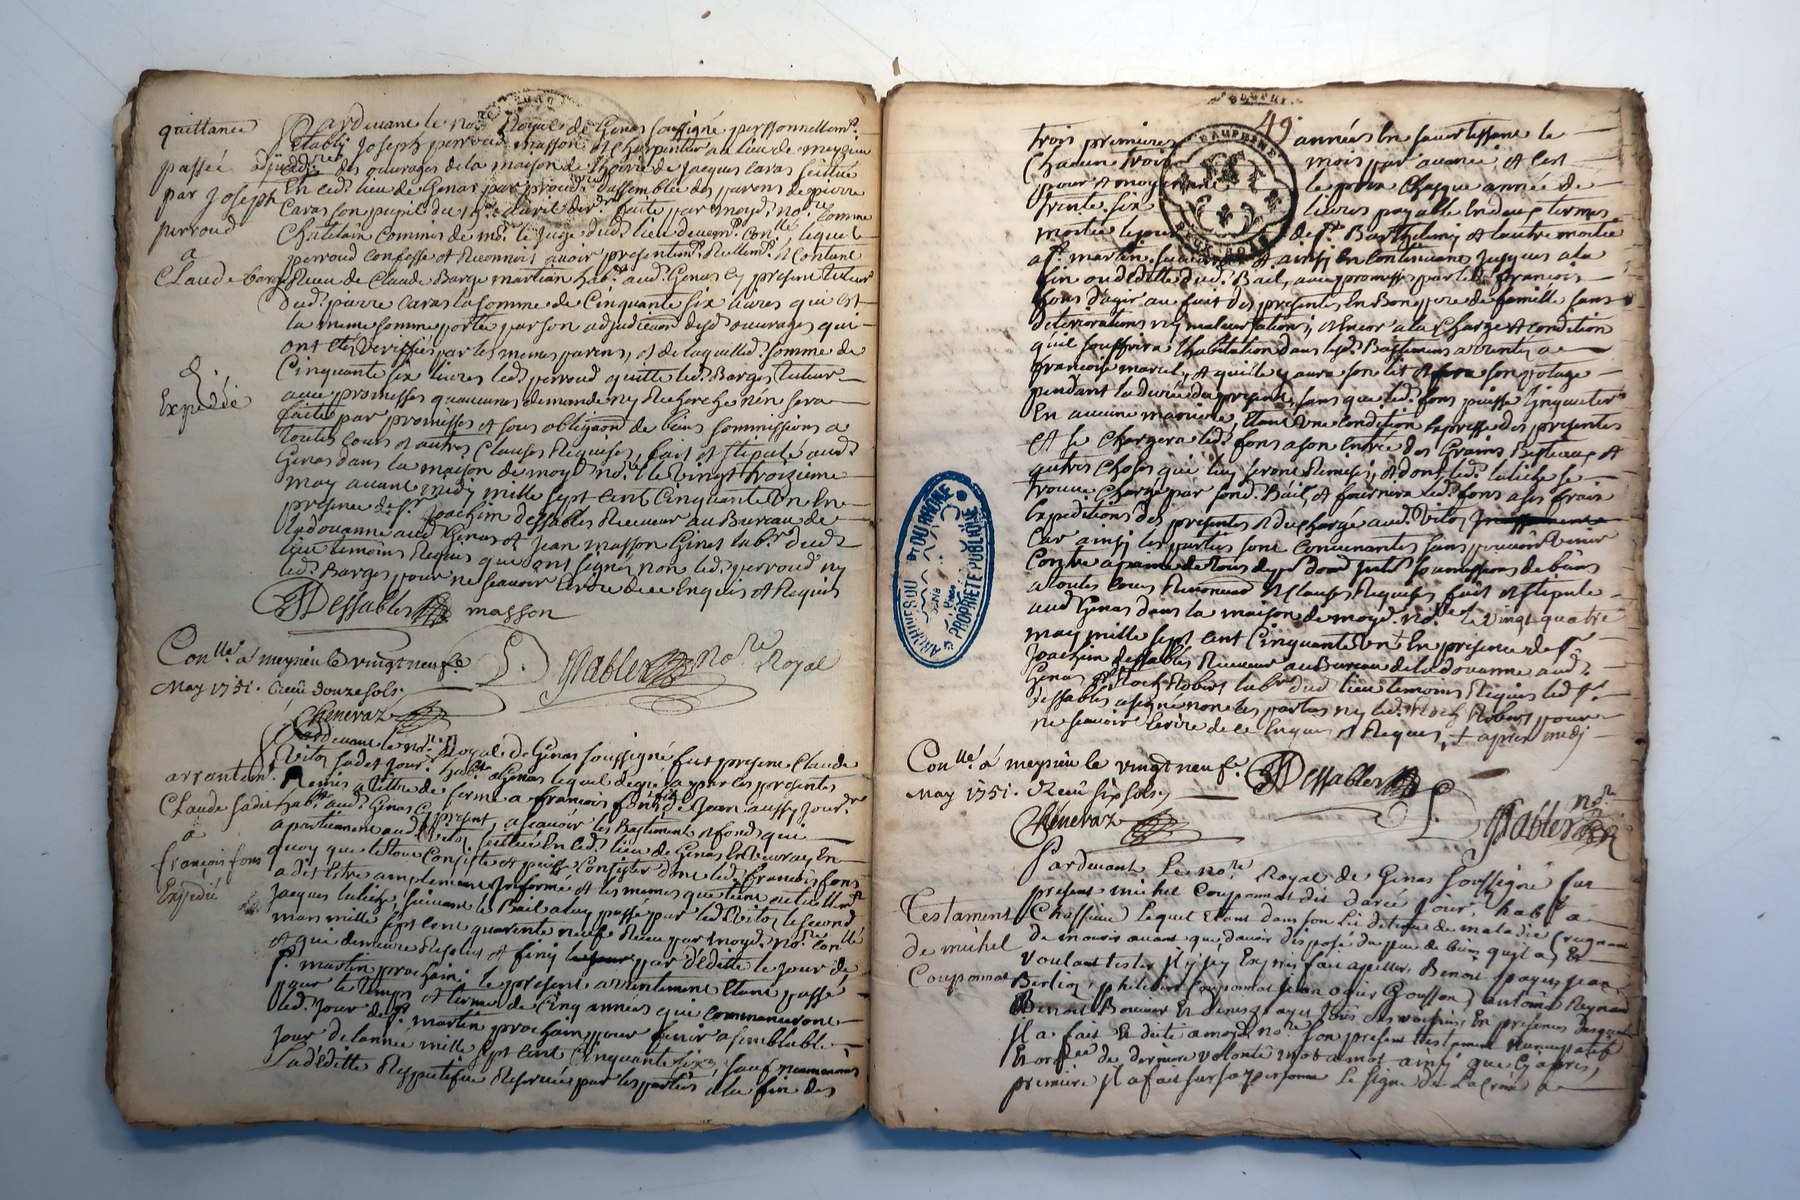 quittance
passée
par Joseph
perroud
a
Claude barge
Expedié
Pardevant le no.re Royal de Genas soussigné personnellem.t
Etabli Joseph perroud masson et charpentier au lieu de meyzieu
des ouvrages de la maison de l'hoirie de Jacques Caras scittué
En ced. lieu de Genas par d'assemblée des parens de pierre
Caras son pupil du avril der. faite par moyd. no.re Comme
Chatelain Commis de m.r le Juge dud. lieu lequel
perroud Confesse et Reconnoit avoir presentem.t Reellem.t et Contant
Receu de Claude Barge martian hab.t aud. Genas Cy present tuteur
dud. pierre Caras la somme de Cinquante six livres qui est
la meme somme portée par son adjudicaon desd. ouvrages qui
ont Eté veriffiés par les memes parens, et de laquelled. somme de
Cinquante six livres led. perroud quitte led. Barges tuteur
avec promesses qu'aucunes demande ny Recherche n'en sera
faite par promisses et sous obligaon de biens soumissions a
toutes Cours et autres Clauses Requises, fait et stipulé aud.
Genas dans la maison de moyd. no.re le vingt troizieme
may avant midy mille sept cent Cinquante un En
presence de s.r Joachim dessables Receveur au Bureau de
la douanne aud. Genas et Jean masson Genet lab.r dud.
lieu temoins Requis qui ont signés non led. perroud ny
led. Barges pour ne scavoir Ecrire de ce Enquis et Requis
Dessables masson
Con.llé a meyzieu le vingt neuf.e
May 1751. Receu douze sols.
Cheneraz
Dessables No.re Royal
arrantem.t
Claude
a
françois fons
Expedié
Pardevant le no.re Royal de Genas soussigné fut present Claude
Vitoz jour. hab.t a Genas lequel de gré a par les presentes
Remis a tittre de ferme a françois fons de Jean aussy jour.
hab.t aud. Genas Cy present, a scavoir les Bastiment et fonds qui
apartiennent aud. Vitoz, scitués En ced. lieu de Genas
quoy que le tout Consiste et puisse Consister dont led. francois fons
a dit Etre amplement Informé et les memes que tient actuellem.t
Jacques suivant le Bail a luy passé par led. Vitoz le second
mars mille sept cent quarente neuf Receu par moyd. no.re Con.llé
et qui demeure Resolus et finy par d'Editte le jour de
s.t martin prochain, le present arrentement Etant passé
pour le temps et terme de Cinq années qui Commenceront
led. jour de s.t martin prochain pour finir a semblable
jour de l'année mille sept cent Cinquante six, sauf neanmoins
la d'Editte Respective Reservée par les parties a la fin des
49
trois premieres années En s'avertissant le
Chacun trois mois par avance, et C'est
pour et moyennant le prix Chaque année de
trente six livres payable En deux termes
moitié le jour de s.t Barthelemy et l'autre moitié
a s.t martin suivant et ainsy En Continuant jusques a la
fin ou d'Editte dud. Bail, avec promesse par led. François
fons d'agir au fait des presentes En Bon pere de famille sans
deteriorations ny malversations, et Encor a la Charge et Condition
qu'il souffrira l'habitation dans lesd. Bastimens a
francoise marcel, et qu'elle y aura son lit et fera son potage
pendant la durée du present, sans que led. fons puisse l'inquieter
En aucune maniere, Etant une Condition Expresse des presentes
Et se Chargera led. fons a son Entrée des Grains Bestiaux et
autres Choses qui luy seront Remises, et dont led. se
trouve Chargé par sond. Bail, et fournira led. fons a ses frais
Expeditions des presentes et du Chargé aud. Vitoz
Car ainsy les parties sont Convenantes sans pouvoir venir
Contre a peine de tous soumissions de biens
a toutes Cours Renonciaon et Clauses Requises fait et stipulé
aud. Genas dans la maison de moyd. no.re le vingt quatre
may mille sept cent Cinquante un En presence de s.r
Joachim dessables Receveur au Bureau de la douanne aud.
Genas et Roch Robert lab.r dud. lieu temoins Requis led. s.r
dessables a signé non les parties ny led. Roch Robert pour
ne scavoir Ecrire de ce Enquis et Requis, + apres midy
Con.llé a meyzieu le vingt neuf.e
May 1751. Receu six sols
Cheneraz
Dessables
Dessables no.re
Testament
de michel
Couponnat
Pardevant le no.re Royal de Genas soussigné fut
present michel Couponnat dit darée jour. hab.t a
Chassieu lequel Etant dans son lit detenu de maladie Craignant
de mourir avant que d'avoir disposé du peu de bien qu'il a, Et
voulant tester il a icy Exprés fait apeller, Benoit payet, Jean
Berlioz, philibert Couponnat Jean ogier Antoine Reynaud
Benoit Bouvier Et Denis payet tous En presences desquels
il a fait Et dicté a moyd. no.re son present testament nuncupatif
Et ord.ce de derniere volonté mot a mot ainsy que Cy apres,
premiere il a fait sur sa personne le signe de la Croix a
DAUPHINE
ARCHIVES DU D.T DU RHÔNE
PROPRIÉTÉ PUBLIQUE